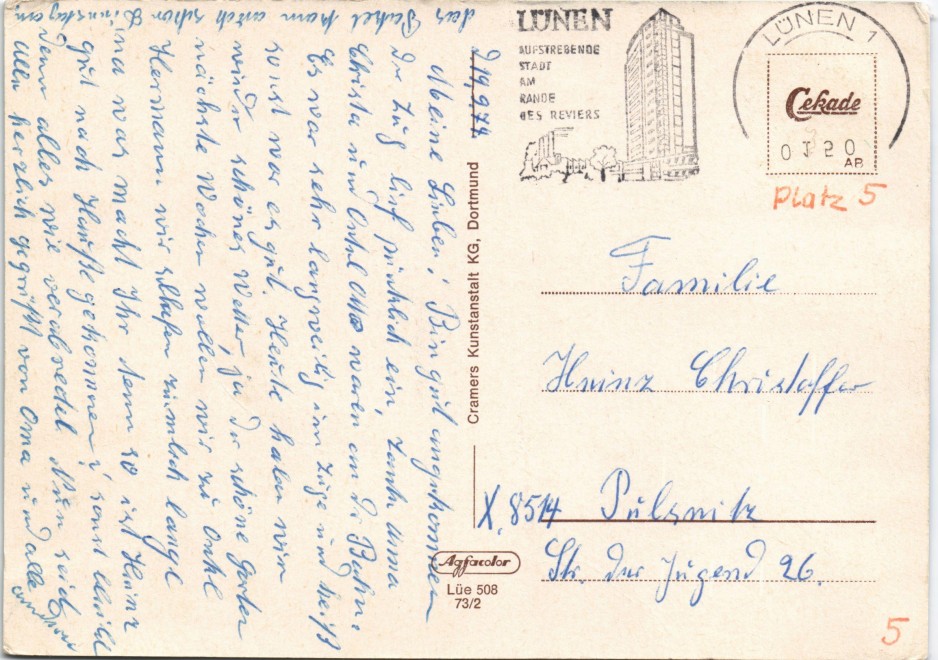 d. 19.9.74
Meine Lieben! Bin gut angekommen
der Zug lief pünktlich ein, Tante Erna
Christa und Onkel Otto waren an der Bahn.
Es war sehr langweilig im Zuge und heiß
sonst war es gut. Heute haben wir
wieder schönes Wetter, ja der schöne Garten
nächste Wochen wollen wir zu Onkel
Hermann wir schlafen ziemlich lange
was macht Ihr denn so ist Heinz
gut nach Hause gekommen? sonst bleibt
denn alles wie verabredet. Nun seid
alle herzlich gegrüßt von Oma und alle
andern
das Paket kam auch schon Dienstag an
LÜNEN
AUFSTREBENDE
STADT
AM
RANDE
DES REVIERS
LÜNEN 1
Cekade
0120
AP
Platz 5
Cramers Kunstanstalt KG, Dortmund
Familie
Heinz Christoffer
X. 8514 Pulsnitz
Str. der Jugend 26.
Agfacolor
Lüe 508
73/2
5